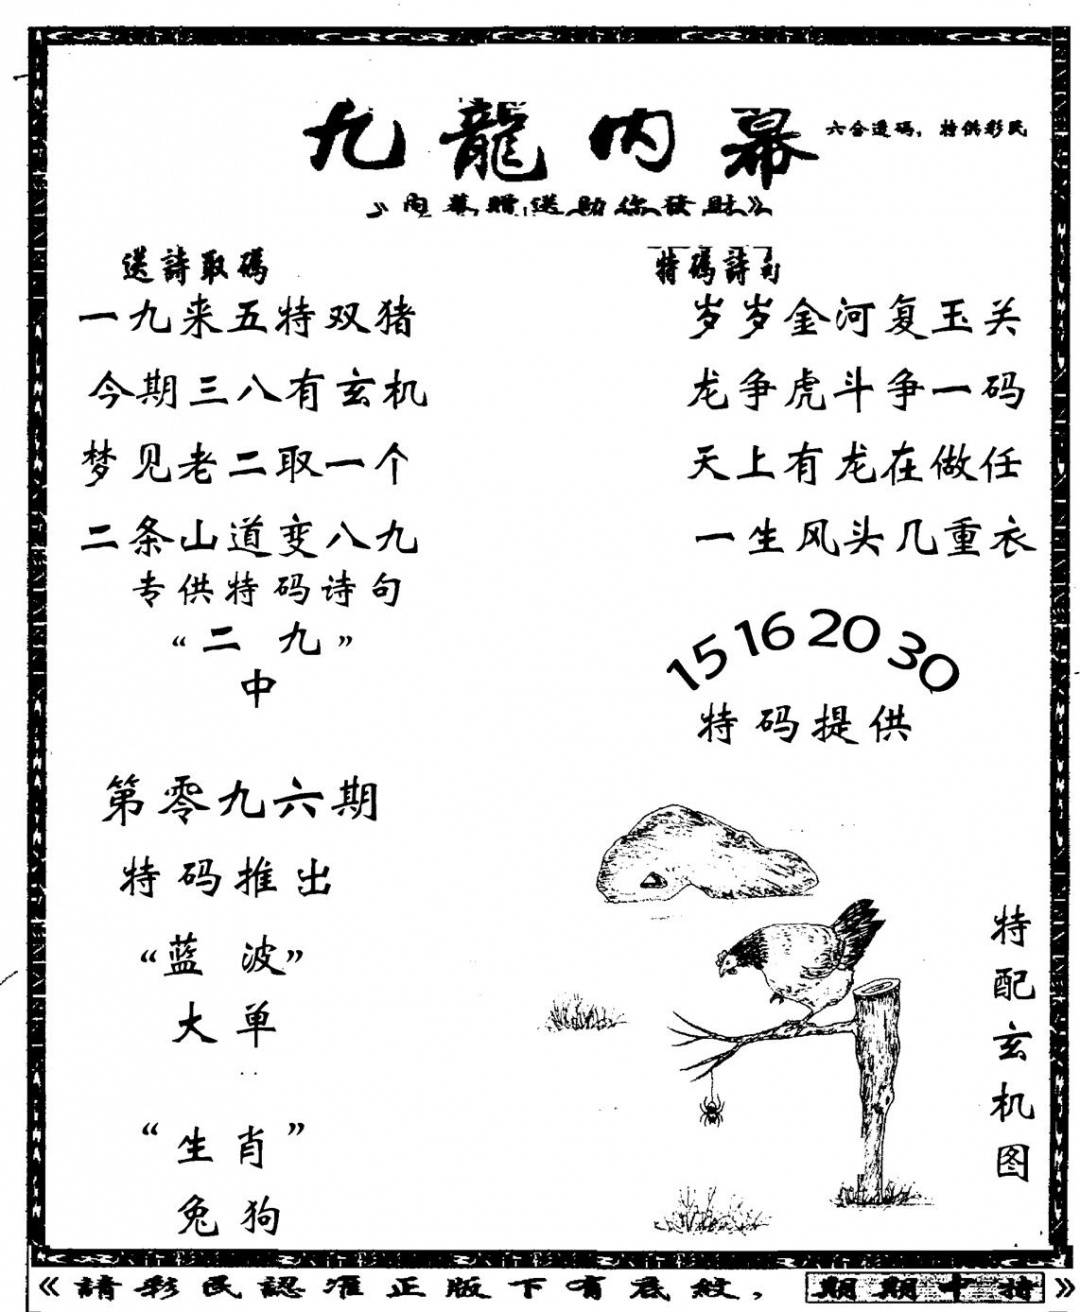 九龍内幕
六合透码，特供彩民
《内幕贈送助你發財》
送詩取碼
一九来五特双猪
今期三八有玄机
梦见老二取一个
二条山道变八九
专供特码诗句
“二 九”
中
特碼詩句
岁岁金河复玉关
龙争虎斗争一码
天上有龙在做任
一生风头几重衣
15 16 20 30
特码提供
第零九六期
特码推出
“蓝 波”
大单
“生肖”
兔狗
特配玄机图
《請彩民認准正版下有底紋，期期中特》